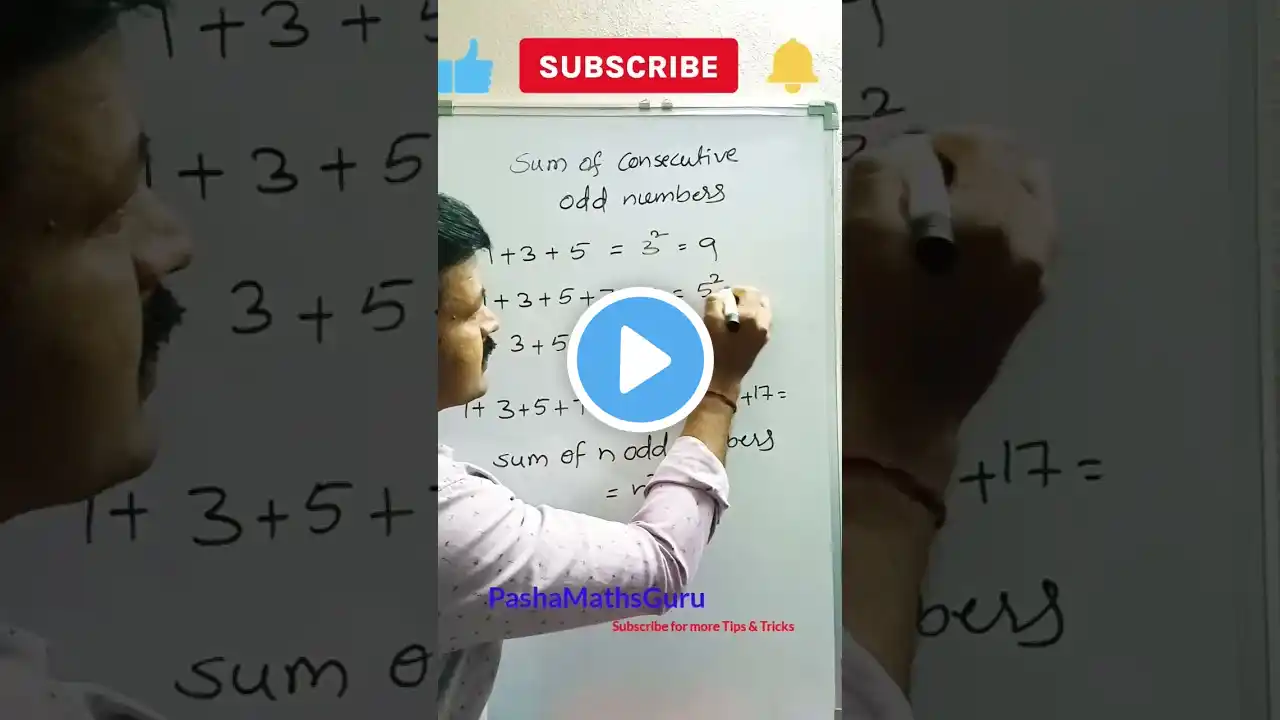 SUBSCRIBE
Sum of consecutive
odd numbers
1 + 3 + 5 = 3² = 9
1 + 3 + 5 + 7 = 5²
3 + 5
1 + 3 + 5 + 7 +17 =
sum of n odd bers
= n
PashaMathsGuru
Subscribe for more Tips & Tricks